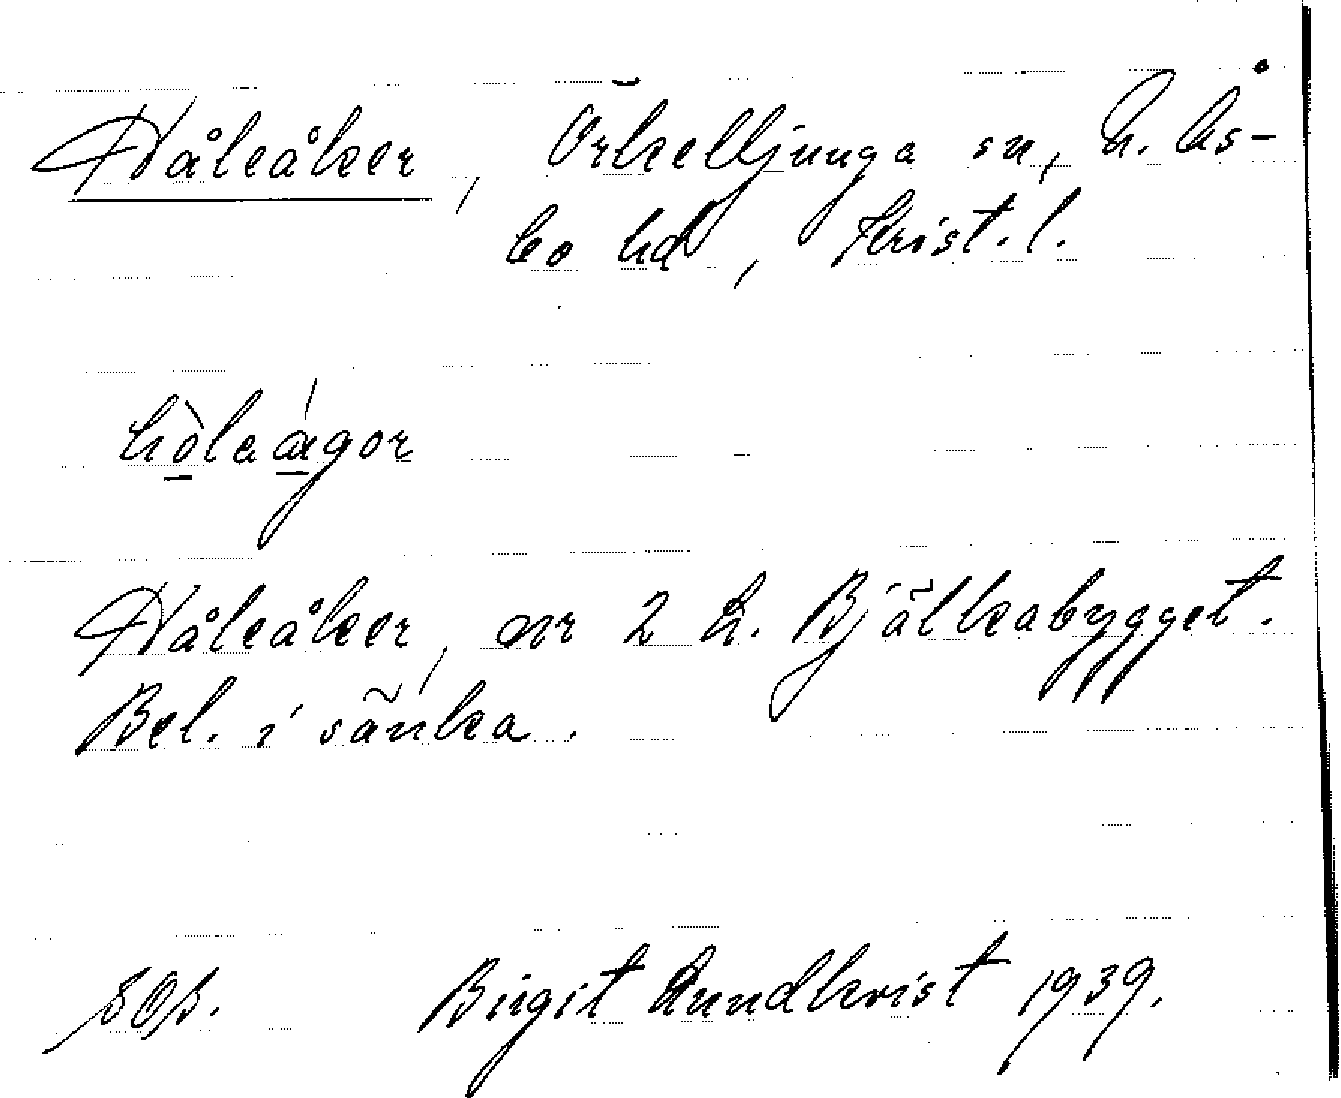 Håleåker, Örkelljunga sn, N. Ås-
bo hd, Krist. l.
hòleágor
Håleåker, nr 2 h. Bjälkabygget.
Bel. i sänka.
Birgit Lundkvist 1939.